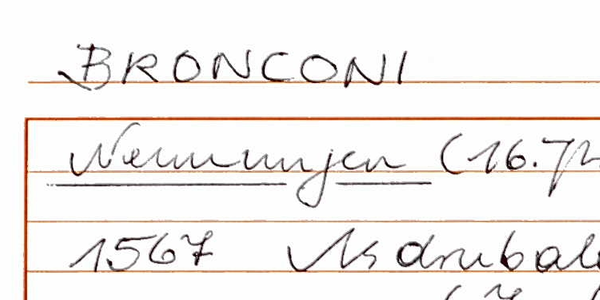 BRONCONI
Nennungen (16.
1567 Asdrubal